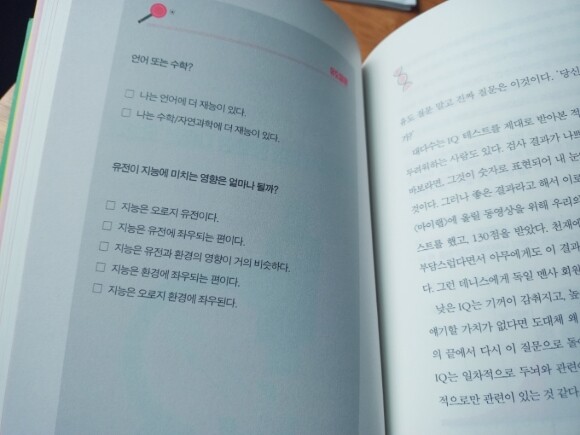 언어 또는 수학?
□ 나는 언어에 더 재능이 있다.
□ 나는 수학/자연과학에 더 재능이 있다.
유전이 지능에 미치는 영향은 얼마나 될까?
□ 지능은 오로지 유전이다.
□ 지능은 유전에 좌우되는 편이다.
□ 지능은 유전과 환경의 영향이 거의 비슷하다.
□ 지능은 환경에 좌우되는 편이다.
□ 지능은 오로지 환경에 좌우된다.
유도 질문 말고 진짜 질문은 이것이다. '당신
까?'
대다수는 IQ 테스트를 제대로 받아본 적
두려워하는 사람도 있다. 검사 결과가 나쁘
바보라면, 그것이 숫자로 표현되어 내 눈
것이다. 그러나 좋은 결과라고 해서 이로
(마이랩)에 올릴 동영상을 위해 우리의
스트를 했고, 130점을 받았다. 천재에
부담스럽다면서 아무에게도 이 결과
다. 그런 데니스에게 독일 멘사 회원
낮은 IQ는 기꺼이 감춰지고, 높
얘기할 가치가 없다면 도대체 왜
의 끝에서 다시 이 질문으로 돌아
IQ는 일차적으로 두뇌와 관련이
적으로만 관련이 있는 것 같다